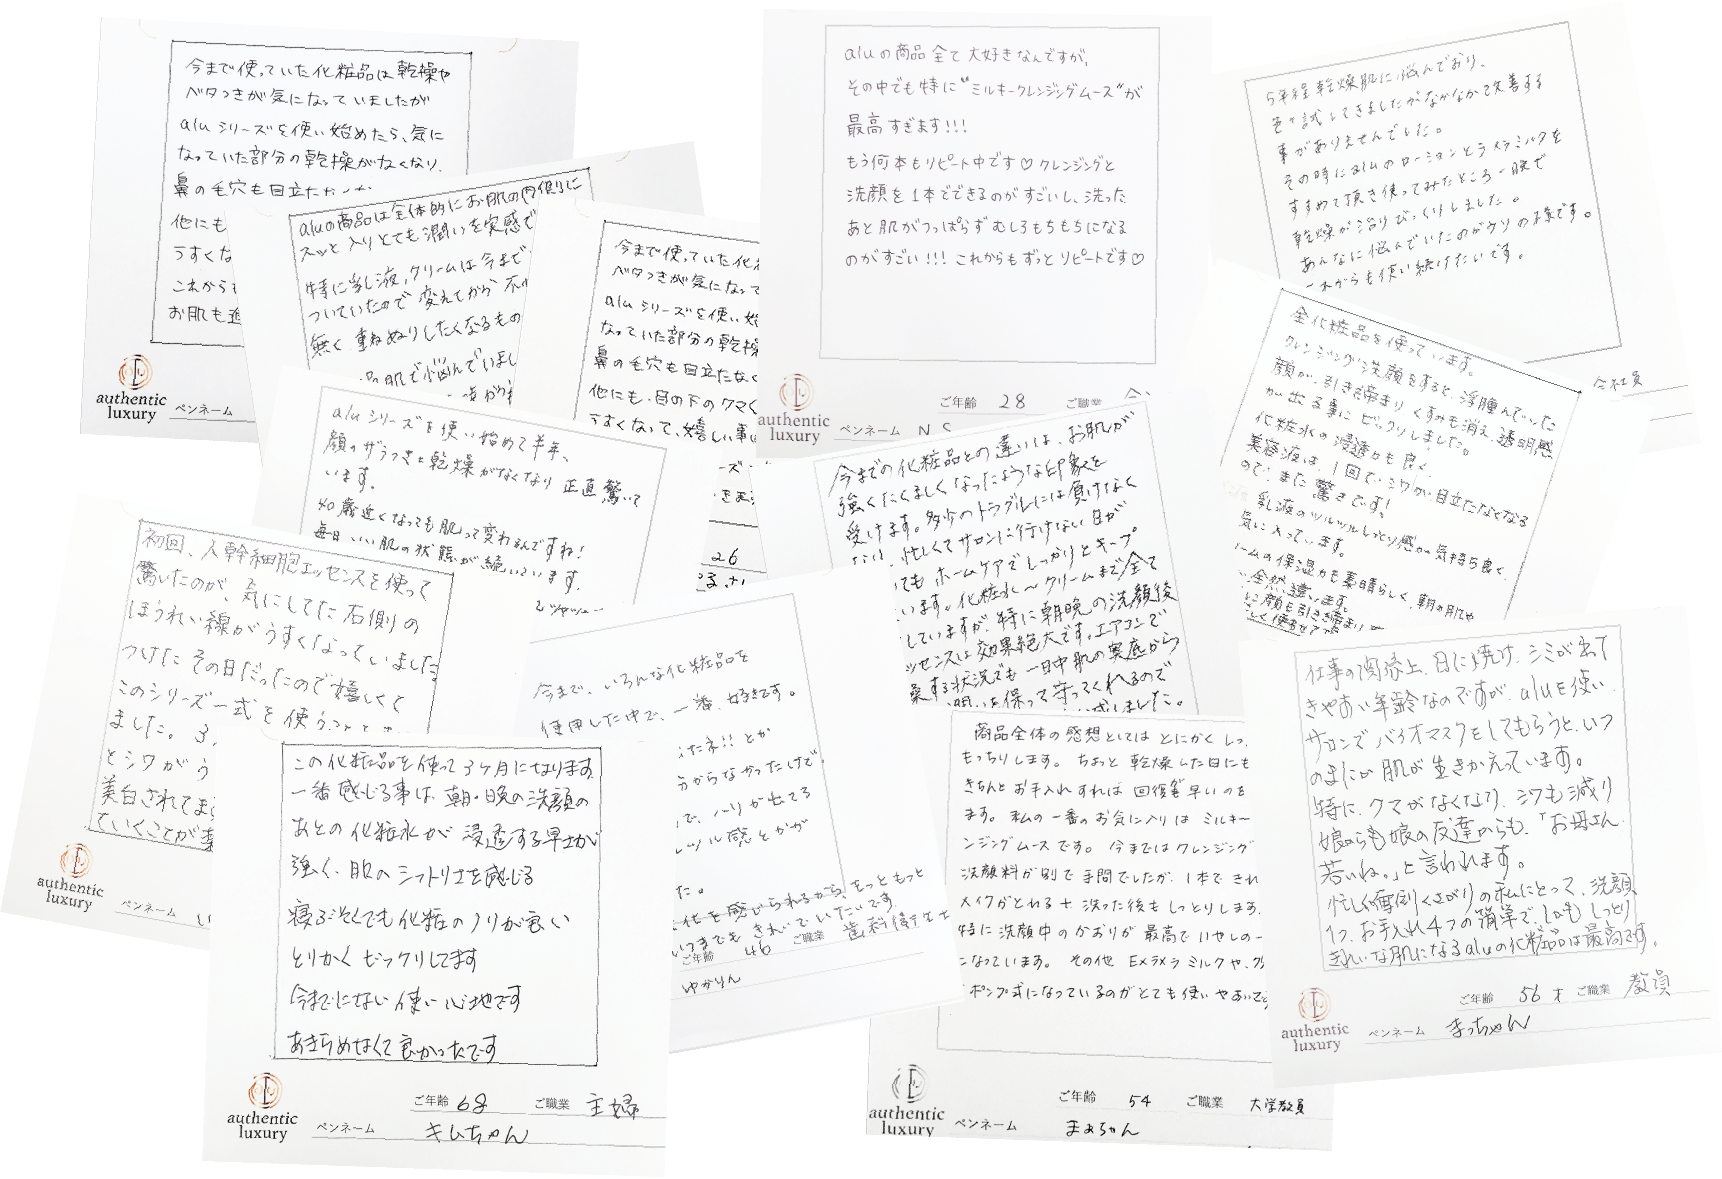 今まで使っていた化粧品は乾操や
ベタつきが気になっていましたが
aluシリーズを使い始めたら、気に
なっていた部分の乾操がなくなり、
鼻の毛穴も目立たな
他にも
うすくな
これからも
お肌も
authentic
luxury
ペンネーム
aluの商品は全体的にお肌の内側に
スッと入りとても潤いを実感で
特に乳液,クリームは今まで
ついていたので変えてから
無く重ねぬりしたくなるもの
肌で悩んでいまし
今まで使っていた化
ベタつきが気になって
aluシリーズを使い始
なっていた部分の乾操
鼻の毛穴も目立たなく
他にも、目の下のクマ
うすくなって、嬉しい事
26
aluの商品全て大好きなんですが、
その中でも特に"ミルキークレンジングムース"が
最高すぎます!!!
もう何本もリピート中です♡クレンジングと
洗顔を1本でできるのがすごいし、洗った
あと肌がつっぱらずむしろもちもちになる
のがすごい!!!これからもずっとリピートです♡
ご年齢 28 ご職業
authentic
luxury
ペンネーム N.S
5年程乾燥肌に悩んでおり、
色々試してきましたがなかなか改善する
事がありませんでした。
その時にaluのローションとラメラミルクを
すすめて頂き使ってみたところ一晩で
乾燥が治りびっくりしました。
あんなに悩んでいたのがウソの様です。
これからも使い続けたいです。
会社員
全化粧品を使っています。
クレンジングで洗顔をすると、浮腫んでいた
顔が、引き締まりくすみも消え、透明感
が出る事にビックリしました。
化粧水の浸透力も良く、
美容液は、1回で、シワが目立たなくなる
ので、また驚きです!
乳液のツルツルしっとり感が気持ち良く、
気に入っています。
ームの保湿力も素晴らしく、朝の肌が
全然違います。
顔も引き締まり
aluシリーズを使い始めて半年、
顔のザラつきと乾燥がなくなり正直驚いて
います。
40歳近くなっても肌って変わるんですね!
毎日いい肌の状態が続いています。
今までの化粧品との違いは、お肌が
強くたくましくなったような印象を
受けます。多少のトラブルには負けなく
ない、忙しくてサロンに行けない日が
てもホームケアでしっかりとキープ
います。化粧水〜クリームまで全て
していますが、特に朝晩の洗顔後
ッセンスは効果絶大です。エアコンで
燥する状況でも一日中肌の奥底から
潤いを保って守ってくれるので
しました。
初回、人幹細胞エッセンスを使って
驚いたのが、気にしてた右側の
ほうれい線がうすくなっていました。
つけたその日だったので嬉しくて
このシリーズ一式を使うこと
ました。3
とシワがう
美白されてま
ていくことが
authentic
luxury
ペンネーム
今まで、いろんな化粧品を
使用した中で、一番、好きです。
たネ!!とか
分からなかったけど
で、ハリが出てる
ツル感とかが
た。
化を感じられるから、もっともっと
いつまでもきれいでいたいです。
ご年齢 46 ご職業 歯科衛生士
ゆかりん
仕事の関係上、日に焼け、シミが出て
きやすい年齢なのですが、aluを使い、
サロンでバイオマスクをしてもらうと、いつ
のまにか肌が生きかえっています。
特に、クマがなくなり、シワも減り
娘からも娘の友達からも、「お母さん、
若いね。」と言われます。
忙しく面倒くさがりの私にとって、洗顔
1つ、お手入れ4つの簡単で、しかもしっとり
きれいな肌になるaluの化粧品は最高です。
ご年齢 56才 ご職業 教員
authentic
luxury
ペンネーム まっちゃん
商品全体の感想としてはとにかくしっ
もっちりします。ちょっと乾燥した日にも
きちんとお手入れすれば回復が早いのを
ます。私の一番のお気に入りはミルキー
ンジングムースです。今まではクレンジング
洗顔料が別で手間でしたが、1本できれ
メイクがとれる+洗った後もしっとりします。
特に洗顔中のかおりが最高でいやしの一
になっています。その他EXラメラミルクや、ク
ポンプ式になっているのがとても使いやすいで
ご年齢 54 ご職業 大学教員
authentic
luxury
ペンネーム まぁちゃん
この化粧品を使って3ヶ月になります。
一番感じる事は、朝・晩の洗顔の
あとの化粧水が浸透する早さが
強く、肌のシットリさを感じる
寝ぶそくでも化粧のノリが良い
とりかくビックリしてます
今までにない使い心地です
あきらめなくて良かったです
ご年齢 68 ご職業 主婦
authentic
luxury
ペンネーム キムちゃん